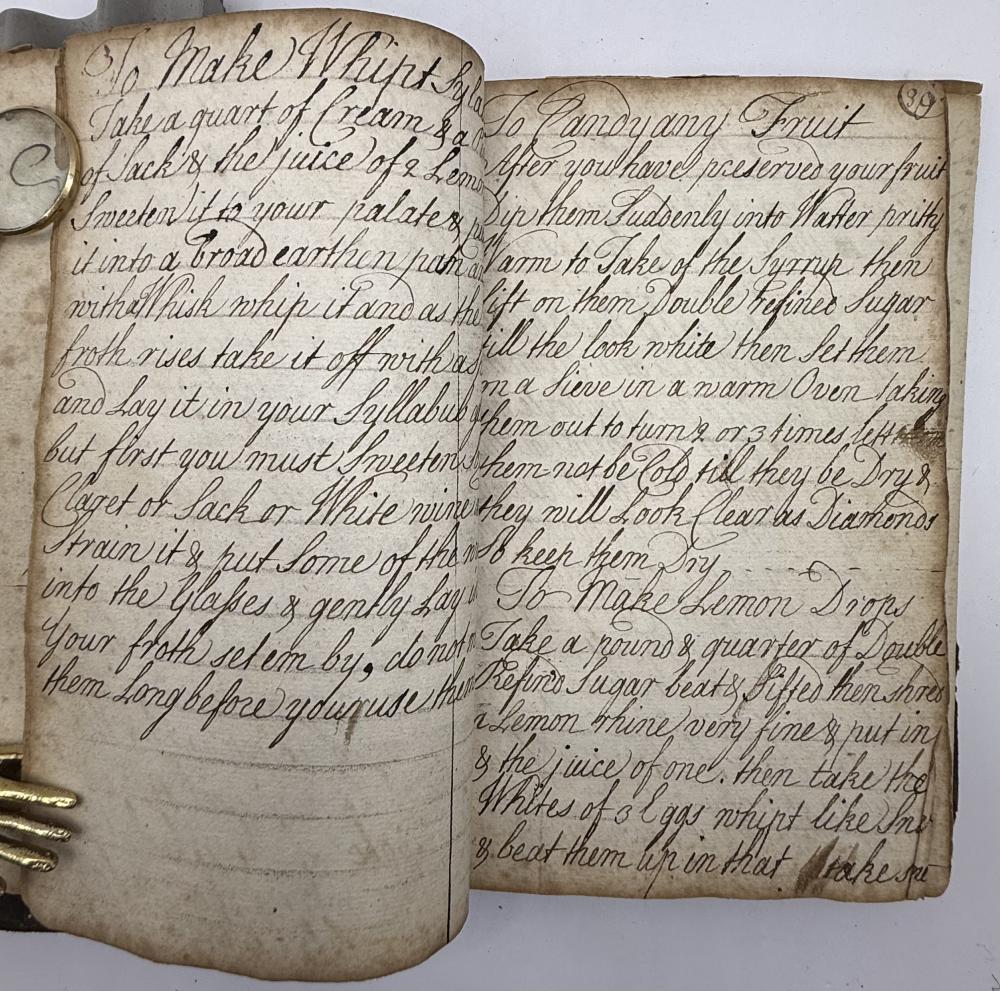 3
To Make Whipt Syla
Take a quart of Cream & a
of Sack & the juice of 2 Lemo
Sweeten it to your palate & pu
it into a broad earthen pan an
with a Whisk whip it and as the
froth rises take it off with a s
and Lay it in your Syllabub g
but first you must Sweeten
Claret or Sack or White wine
Strain it & put Some of the
into the Glasses & gently Lay
Your froth set em by, do not
them Long before you use them
39
To Candy any Fruit
After you have preserved your fruit
Dip them Suddenly into Watter prithy
Warm to Take of the Syrrup then
Sift on them Double refined Sugar
till the look white then Set them
on a Sieve in a warm Oven taking
them out to turn 2 or 3 times lett
them not be Cold till they be Dry &
they will Look Clear as Diamonds
So keep them Dry
To Make Lemon Drops
Take a pound & quarter of Double
Refind Sugar beat & Sifted then shred
a Lemon rhine very fine & put in
& the juice of one. then take the
Whites of 3 Eggs whipt like Sno
& beat them up in that take